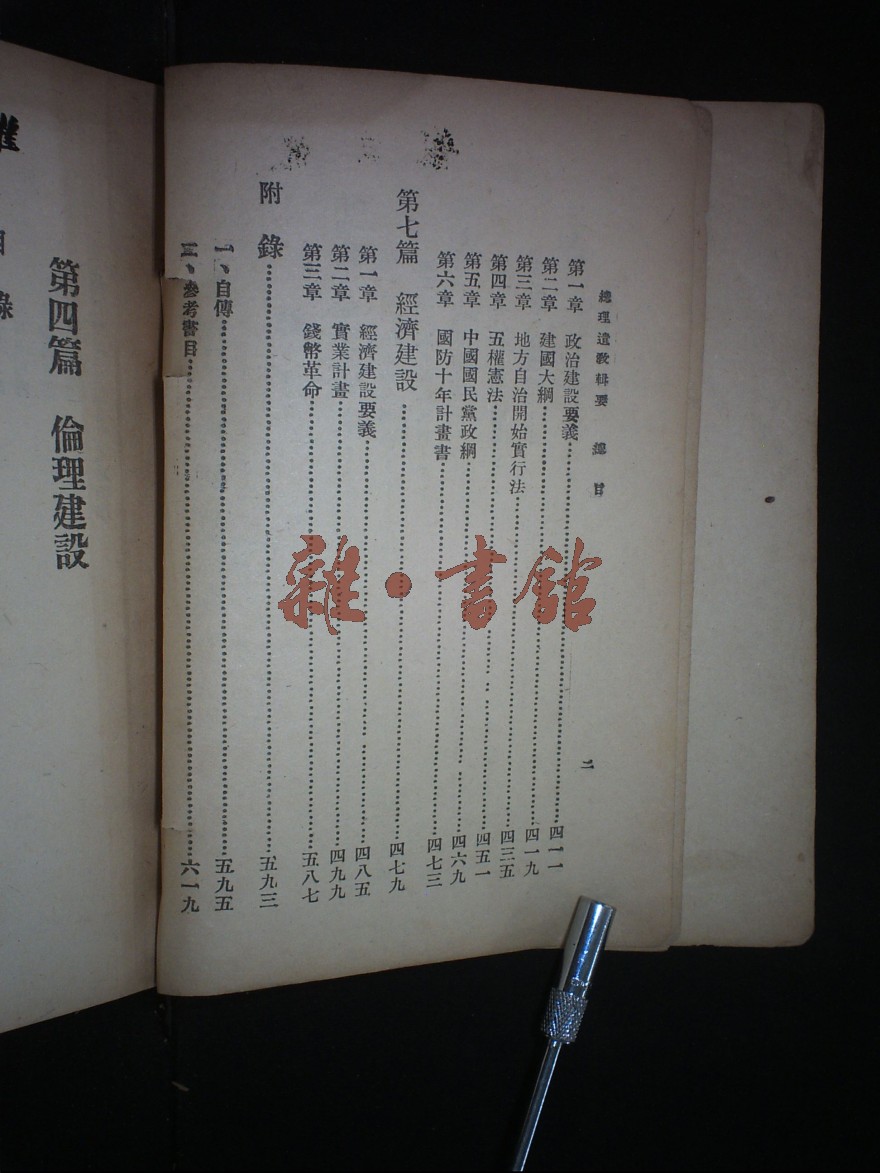 總理遺教輯要 總目 二
第一章 政治建設要義……四一一
第二章 建國大綱……四一九
第三章 地方自治開始實行法……四三五
第四章 五權憲法……四五一
第五章 中國國民黨政綱……四六九
第六章 國防十年計畫書……四七三
第七篇 經濟建設……四七九
第一章 經濟建設要義……四八五
第二章 實業計畫……四九九
第三章 錢幣革命……五八七
附錄……五九三
一、自傳……五九五
二、參考書目……六一九
第四篇 倫理建設
雜·書館